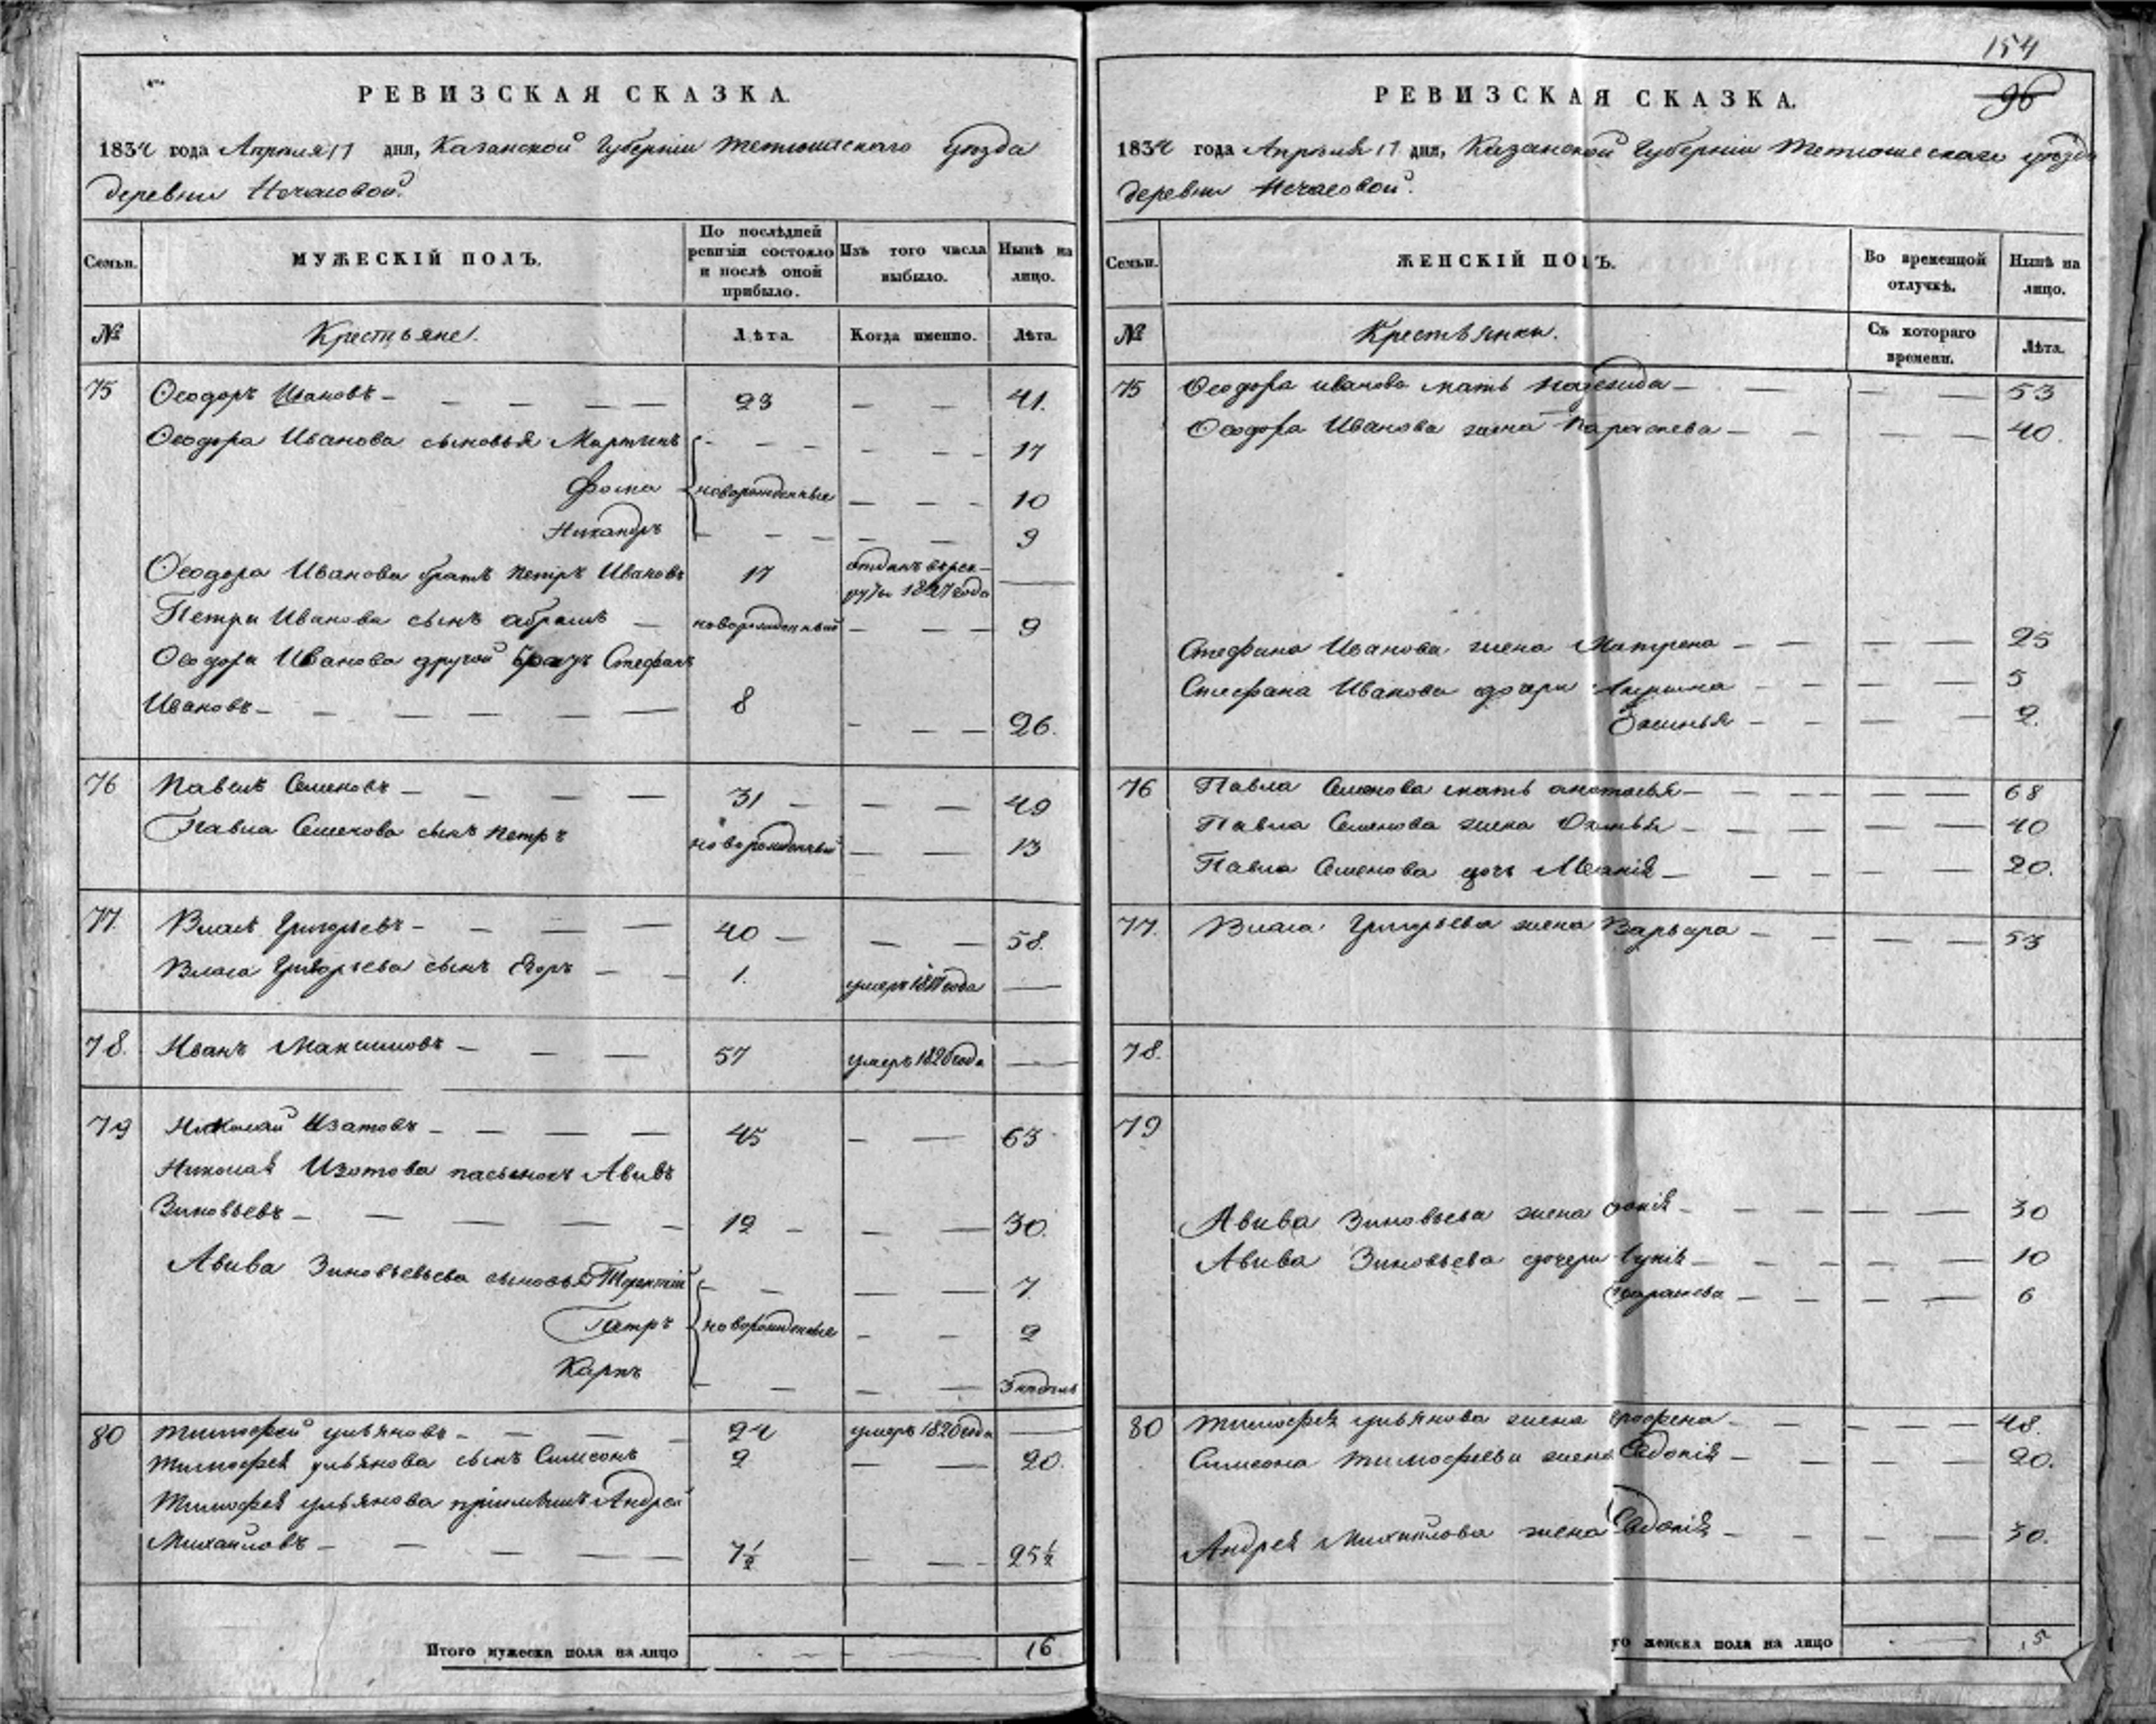 РЕВИЗСКАЯ СКАЗКА.
1834 года Апреля 17 дня, Казанской Губернiи Тетюшскаго уѣзда
деревни Нечаевой.
Семьи. МУЖЕСКIЙ ПОЛЪ. По послѣдней ревизiи состояло и послѣ оной прибыло. Изъ того числа выбыло. Нынѣ на лицо.
№ Крестьяне. Лѣта. Когда именно. Лѣта.
75 Ѳеодоръ Ивановъ — 23 — 41.
Ѳеодора Иванова сыновья Мартинъ — 17
Фома новорожденные — 10
Никандръ — 9
Ѳеодора Иванова братъ Петръ Ивановъ 17 отданъ въ рек-
руты 1827 года —
Петра Иванова сынъ Абрамъ — новорожденный — 9
Ѳеодора Иванова другой братъ Стефанъ
Ивановъ — 8 — 26.
76 Павелъ Семеновъ — 31 — 49
Павла Семенова сынъ Петръ новорожденный — 13
77 Власъ Григорьевъ — 40 — 58.
Власа Григорьева сынъ Егоръ — 1. умеръ года —
78. Иванъ Максимовъ — 57 умеръ 1826 года —
79 Николай Изатовъ — 45 — 63
Николая Изотова пасынокъ Авивъ
Зиновьевъ — 12 — 30.
Авива Зиновьевьева сыновья Терентiй — 7
Петръ новорожденные — 2
Карпъ — 3 недѣль
80 Тимофей Ульяновъ — 24 умеръ 1826 года —
Тимофея Ульянова сынъ Симеонъ 2 — 20.
Тимофея Ульянова прiимышъ Андрей
Михайловъ — 7½ — 25½
Итого мужеска пола на лицо — 16
154
96
РЕВИЗСКАЯ СКАЗКА.
1834 года Апреля 17 дня, Казанской Губернiи Тетюшскаго уѣзда
деревни Нечаевой.
Семьи. ЖЕНСКIЙ ПОЛЪ. Во временной отлучкѣ. Нынѣ на лицо.
№ Крестьянки. Съ котораго времени. Лѣта.
75 Ѳеодора Иванова мать Надежида — 53
Ѳеодора Иванова жена Параскева — 40.
Стефана Иванова жена Матрена — 25
Стефана Иванова дочери Акулина — 5
Ѳеминья — 2.
76 Павла Семенова мать Анотасья — 68
Павла Семенова жена — 40
Павла Семенова дочь Меланiя — 20.
77. Власа Григорьева жена Варвара — 53
78.
79
Авива Зиновьева жена — 30
Авива Зиновьева дочери — 10
Параскева — 6
80 Тимофея Ульянова жена — 48.
Симеона Тимофеева жена Евдокiя — 20.
Андрея Михайлова жена Евдокiя — 30.
го женска пола на лицо — 15